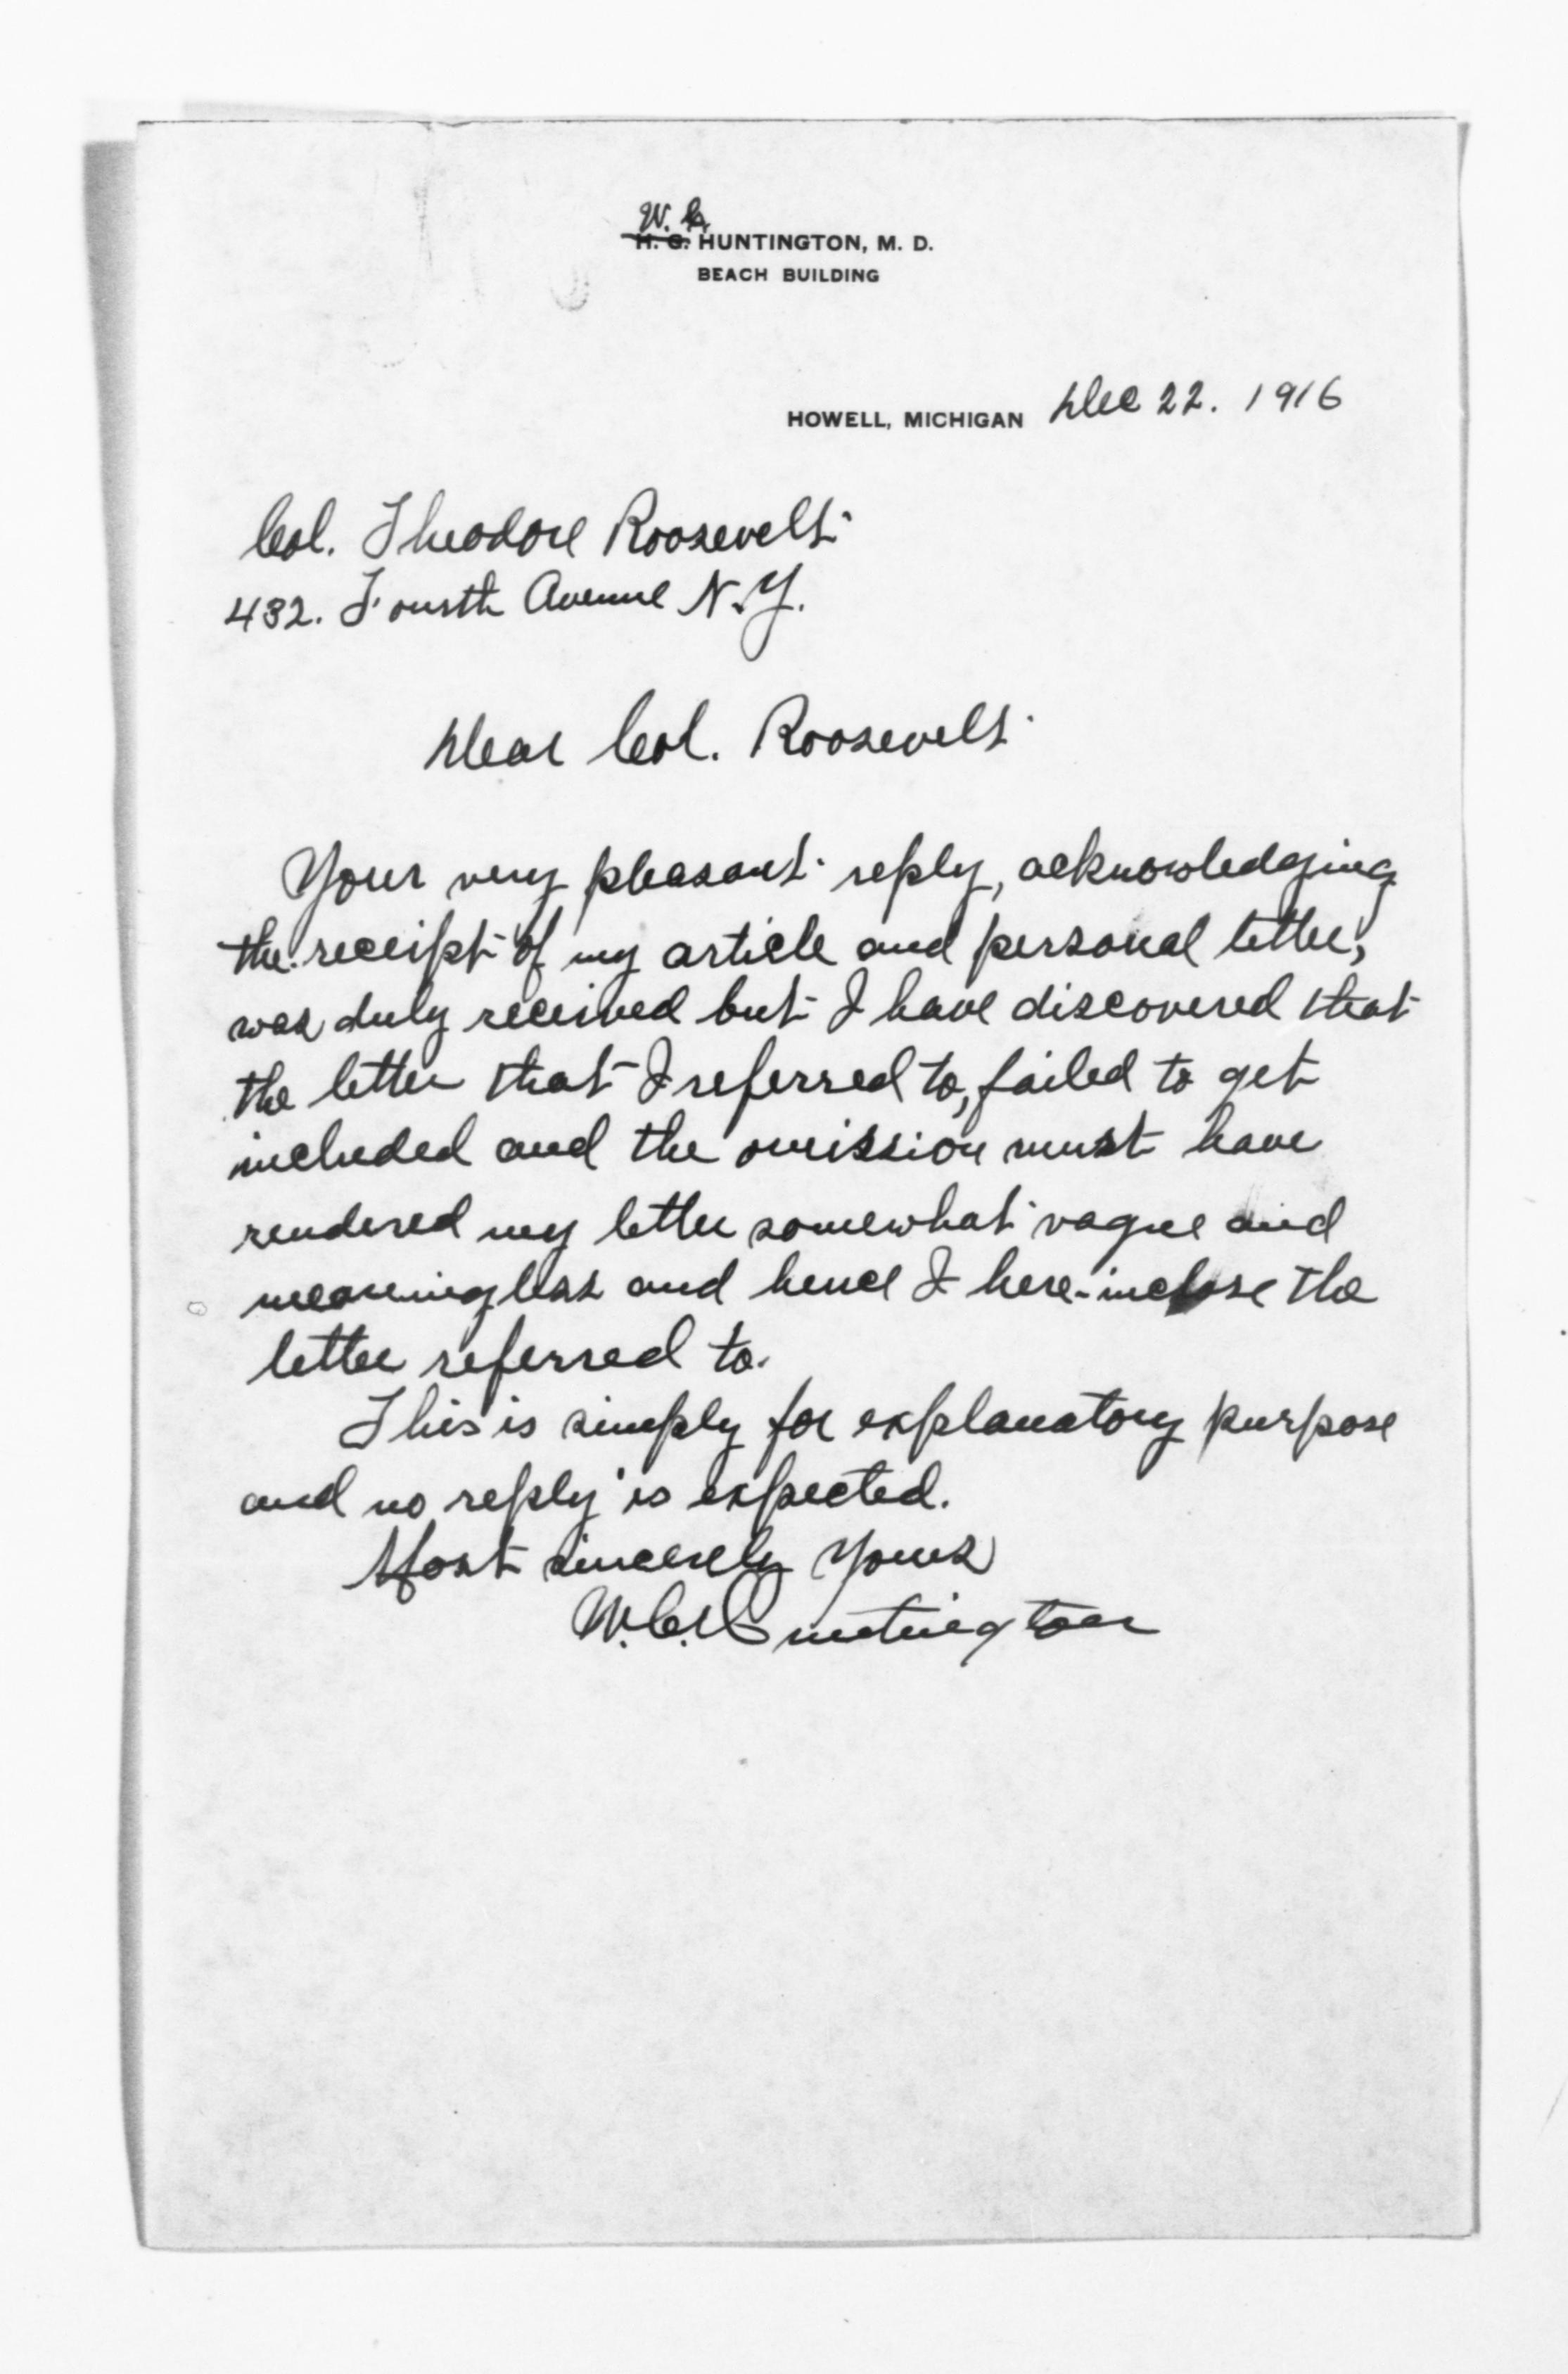 W. C.
H. G. HUNTINGTON, M. D.
BEACH BUILDING
HOWELL, MICHIGAN Dec 22. 1916
Col. Theodore Roosevelt
432. Fourth Avenue N.Y.
Dear Col. Roosevelt
Your very pleasant reply, acknowledging
the receipt of my article and personal letter,
was duly received but I have discovered that
the letter that I referred to, failed to get
included and the omission must have
rendered my letter somewhat vague and
meaningless and hence I here-inclose the
letter referred to.
This is simply for explanatory purpose
and no reply is expected.
Most sincerely yours
W.C. Huntington